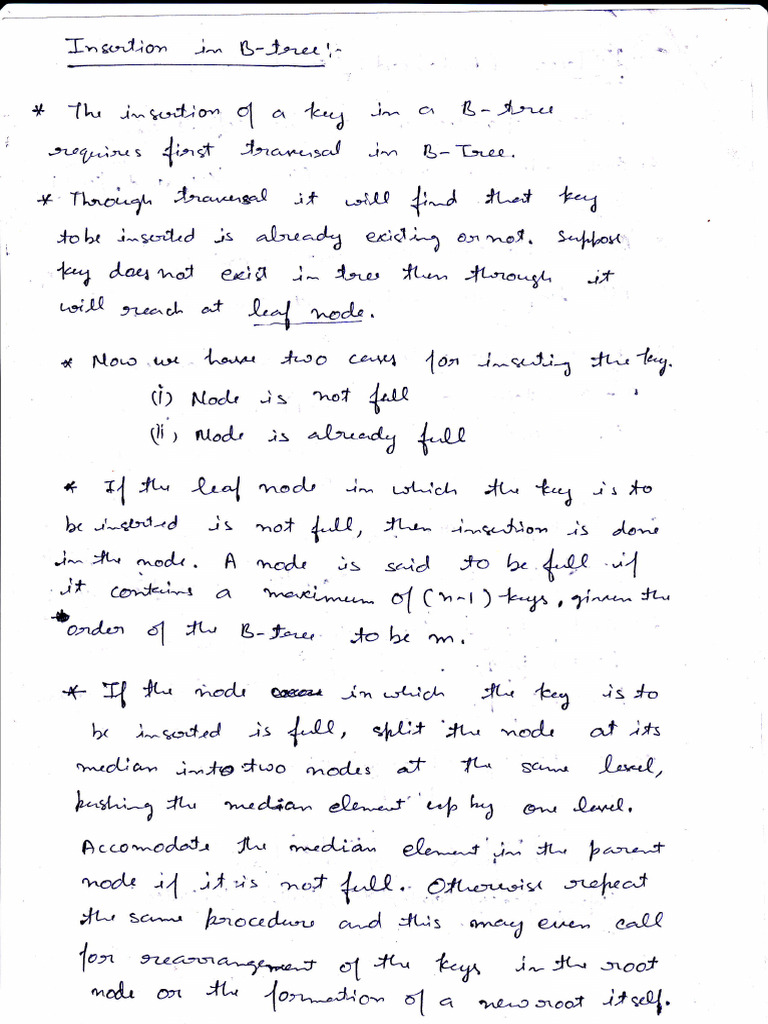 Insertion in B-tree:-
* The insertion of a key in a B-tree
requires first traversal in B-Tree.
* Through traversal it will find that key
to be inserted is already existing or not. Suppose
key does not exist in tree then through it
will reach at leaf node.
* Now we have two cases for inserting the key.
(i) Node is not full
(ii) Node is already full
* If the leaf node in which the key is to
be inserted is not full, then insertion is done
in the node. A node is said to be full if
it contains a maximum of (n-1) keys, given the
order of the B-tree to be m.
* If the node in which the key is to
be inserted is full, split the node at its
median into two nodes at the same level,
pushing the median element up by one level.
Accomodate the median element in the parent
node if it is not full. Otherwise repeat
the same procedure and this may even call
for rearrangement of the keys in the root
node or the formation of a new root itself.